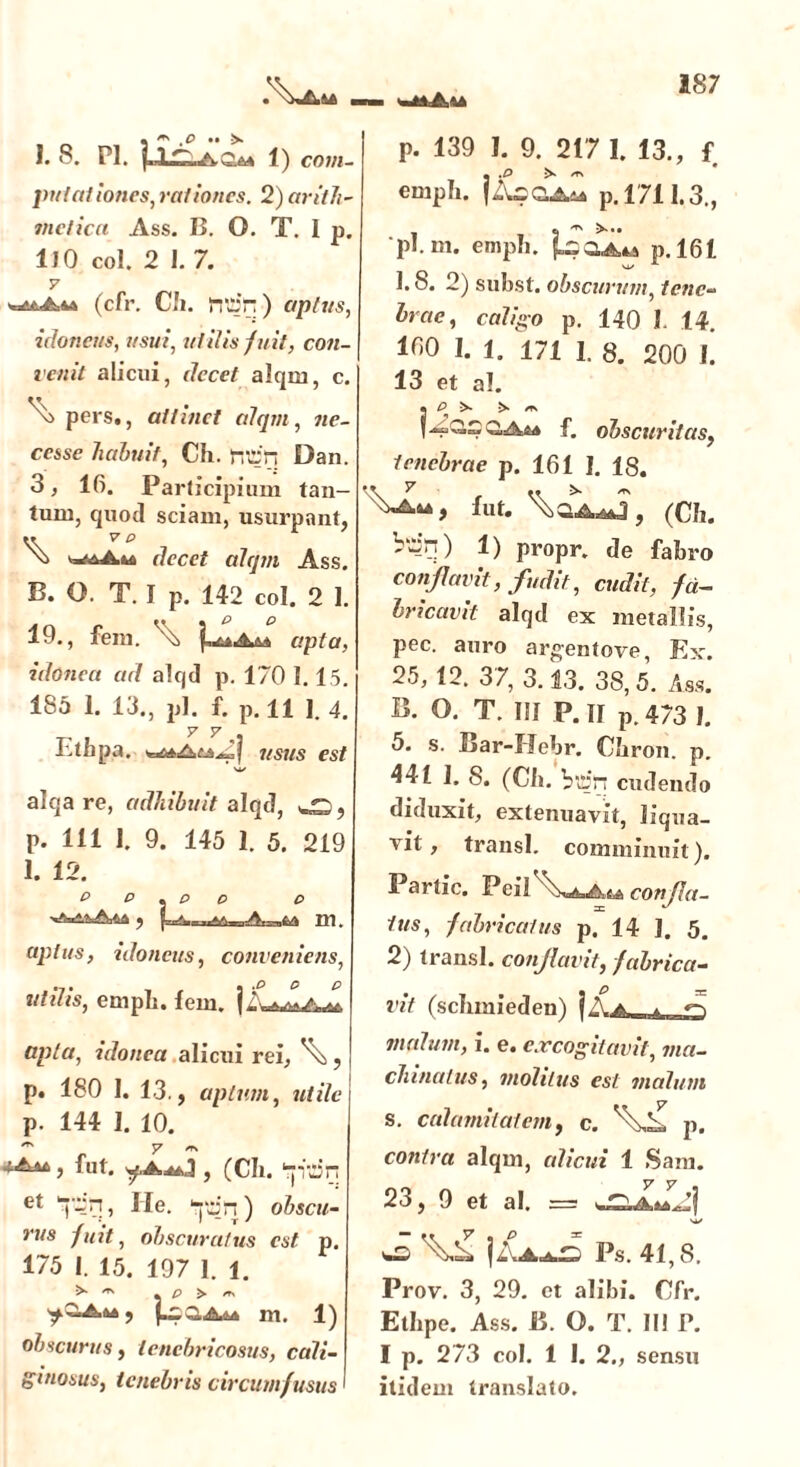 ܚܫܚ — ܚܫܠ. 187
l. 8. Pl. ܚܘܫܒܢܐ 1) com-
putationes, rationes. 2) arith-
metica Ass. B. O. T. I p.
110 col. 2 l. 7.
ܚܫܚ (cfr. Ch. חשח) aptus,
idoneus, usui, utilis fuit, con-
venit alicui, decet alqm, c.
ܠ pers., attinet alqm, ne-
cesse habuit, Ch. חשח Dan.
3, 16. Participium tan-
tum, quod sciam, usurpant,
ܚܫܚ ܠ decet alqm Ass.
B. O. T. I p. 142 col. 2 l.
19., fem. ܚܫܚܐ ܠ apta,
idonea ad alqd p. 170 l. 15.
185 l. 13., pl. f. p. 11 l. 4.
Ethpa. ܐܬܚܫܚ usus est
alqa re, adhibuit alqd, ܒ,
p. 111 l. 9. 145 l. 5. 219
l. 12.
ܚܫܚ, ܚܫܚܐ m.
aptus, idoneus, conveniens,
utilis, emph. fem. ܚܫܚܬܐ
apta, idonea alicui rei, ܠ,
p. 180 l. 13., aptum, utile
p. 144 l. 10.
ܚܫܟ, fut. ܢܚܫܟ, (Ch. חשוך
et חשך, He. חשך) obscu-
rus fuit, obscuratus est p.
175 l. 15. 197 l. 1.
ܚܫܘܟ, ܚܫܘܟܐ m. 1)
obscurus, tenebricosus, cali-
ginosus, tenebris circumfusus
p. 139 l. 9. 217 l. 13., f.
emph. ܚܫܘܟܬܐ p. 171 l. 3.,
pl. m. emph. ܚܫܘܟܐ p. 161
l. 8. 2) subst. obscurum, tene-
brae, caligo p. 140 l. 14.
160 l. 1. 171 l. 8. 200 l.
13 et al.
ܚܫܘܟܘܬܐ f. obscuritas,
tenebrae p. 161 l. 18.
ܚܫܠ, fut. ܢܚܫܘܠ, (Ch.
חשל) 1) propr. de fabro
conflavit, fudit, cudit, fa-
bricavit alqd ex metallis,
pec. auro argentove, Ex.
25, 12. 37, 3. 13. 38, 5. Ass.
B. O. T. III P. II p. 473 l.
5. s. Bar-Hebr. Chron. p.
441 l. 8. (Ch. חשל cudendo
diduxit, extenuavit, liqua-
vit, transl. comminuit).
Partic. Peil ܚܫܝܠ confla-
tus, fabricatus p. 14 l. 5.
2) transl. conflavit, fabrica-
vit (schmieden) ܒܝܫܬܐ
malum, i. e. excogitavit, ma-
chinatus, molitus est malum
s. calamitatem, c. ܥܠ p.
contra alqm, alicui 1 Sam.
23, 9 et al. = ܐܬܚܫܒ
ܒܝܫܬܐ ܥܠ ܒ Ps. 41, 8.
Prov. 3, 29. et alibi. Cfr.
Ethpe. Ass. B. O. T. III P.
I p. 273 col. 1 l. 2., sensu
itidem translato.